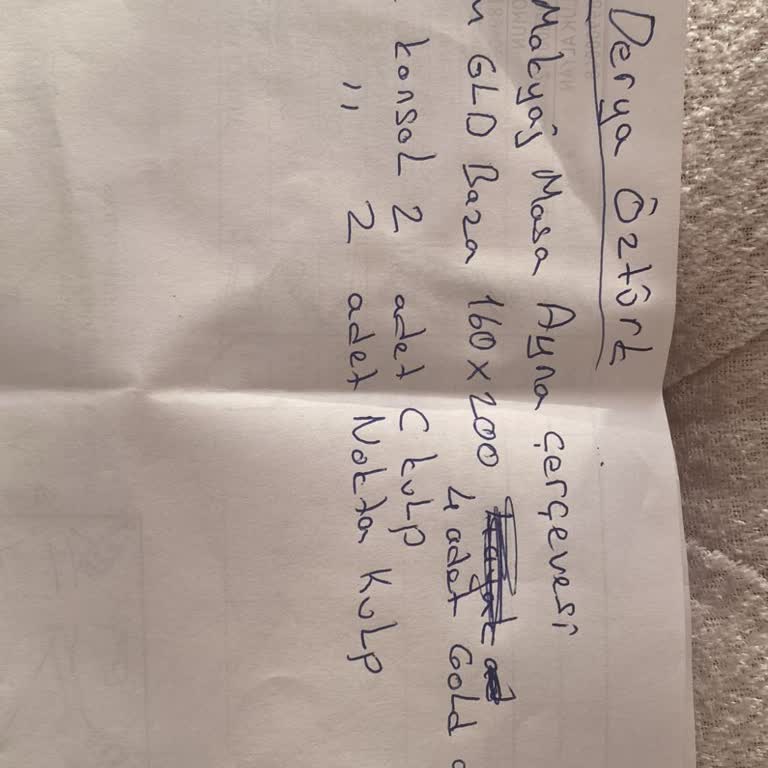 Derya Öztürk
Makyaj Masa Ayna çerçevesi
GLD Baza 160x200
4 adet Gold
konsol 2 adet C kulp
" 2 adet Nokta kulp